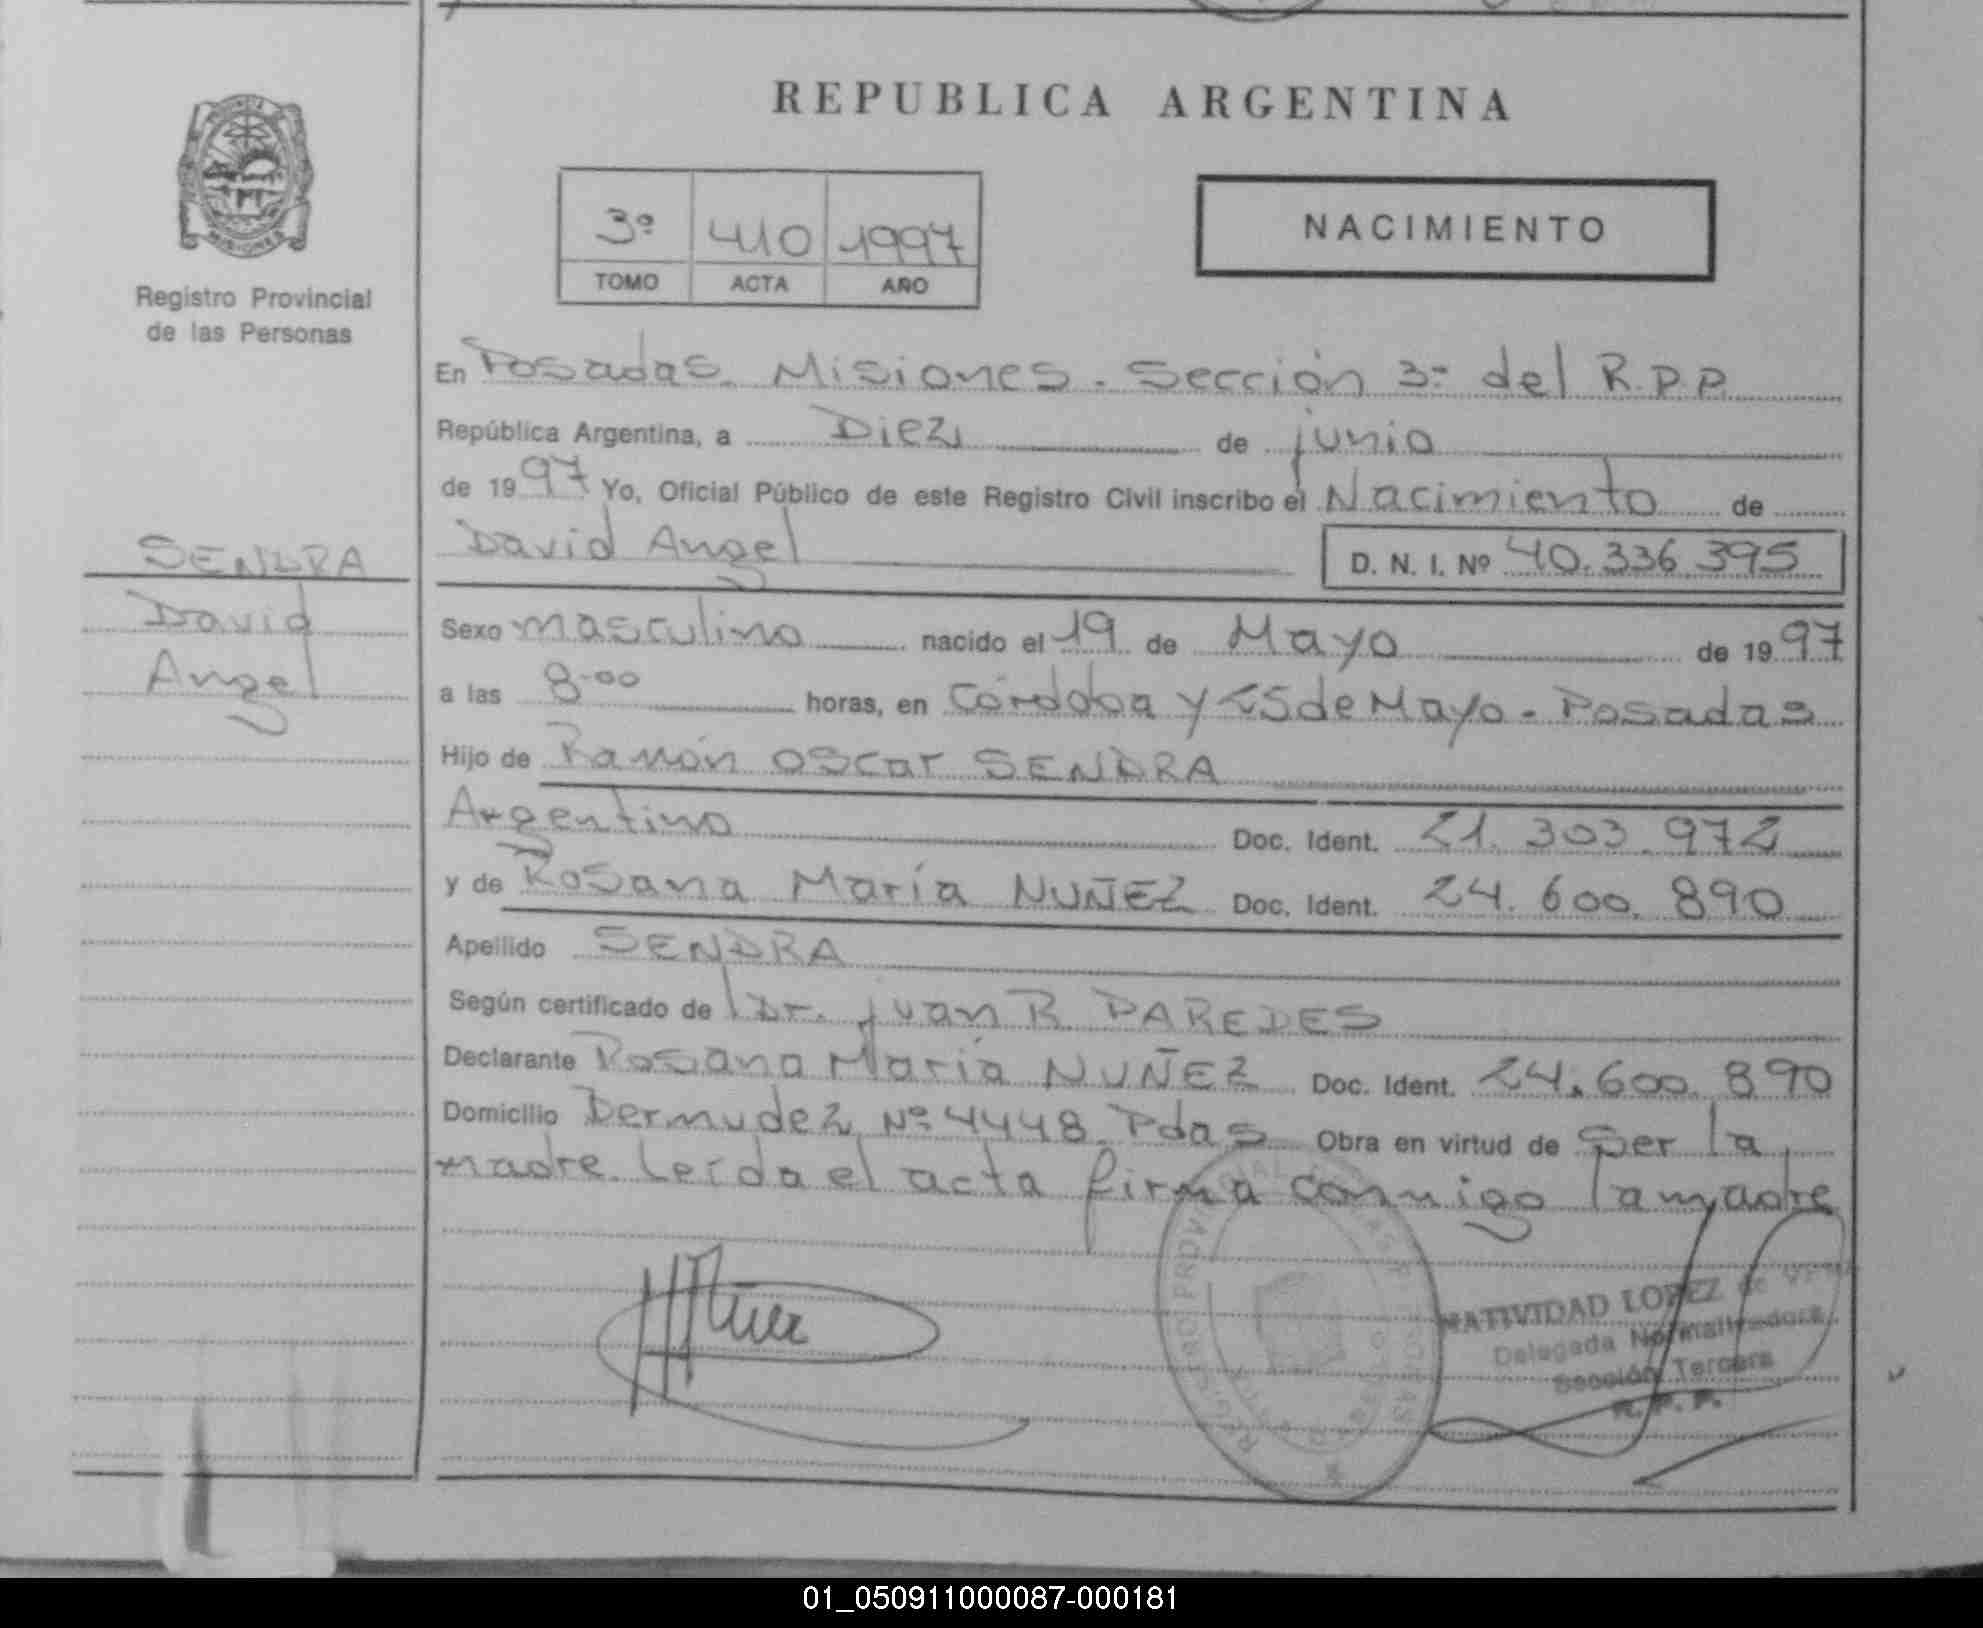 REPUBLICA ARGENTINA
MISIONES
Registro Provincial
de las Personas
3º 410 1997
TOMO ACTA AÑO
NACIMIENTO
En Posadas. Misiones. Sección 3ª del R.P.P.
República Argentina, a Diez de junio
de 1997 Yo, Oficial Público de este Registro Civil inscribo el Nacimiento de
David Angel
D. N. I. Nº 40.336.395
SENDRA
David
Angel
Sexo masculino nacido el 19 de Mayo de 1997
a las 8.00 horas, en Córdoba y 25 de Mayo - Posadas
Hijo de Ramón Oscar SENDRA
Argentino Doc. Ident. 21.303.972
y de Rosana María NUÑEZ Doc. Ident. 24.600.890
Apellido SENDRA
Según certificado de Dr. juan R PAREDES
Declarante Rosana María NUÑEZ Doc. Ident. 24.600.890
Domicilio Bermudez Nº 4448 Pdas Obra en virtud de Ser la
madre. Leída el acta firma conmigo la madre
NATIVIDAD LOPEZ de
Delegada Normalizadora
Sección Tercera
R. P. P.
01_050911000087-000181